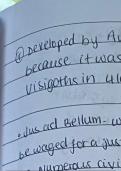 ① Developed by Au
because it was
Visigoths in 41
. Jus ad Bellum - w
be waged for a jus
. Numerous civi